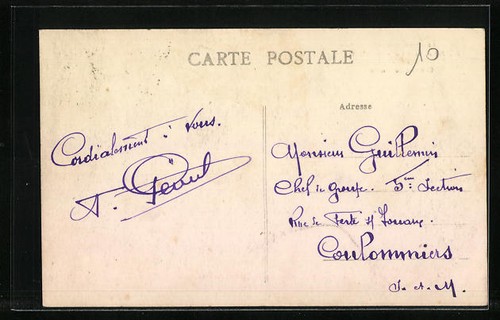 CARTE POSTALE
10
Adresse
Cordialement à Vous.
A.
Monsieur Guillemin
Chef de groupe. 5me Section
Rue de Ferté s/ Jouarre.
Coulommiers
S. et M.